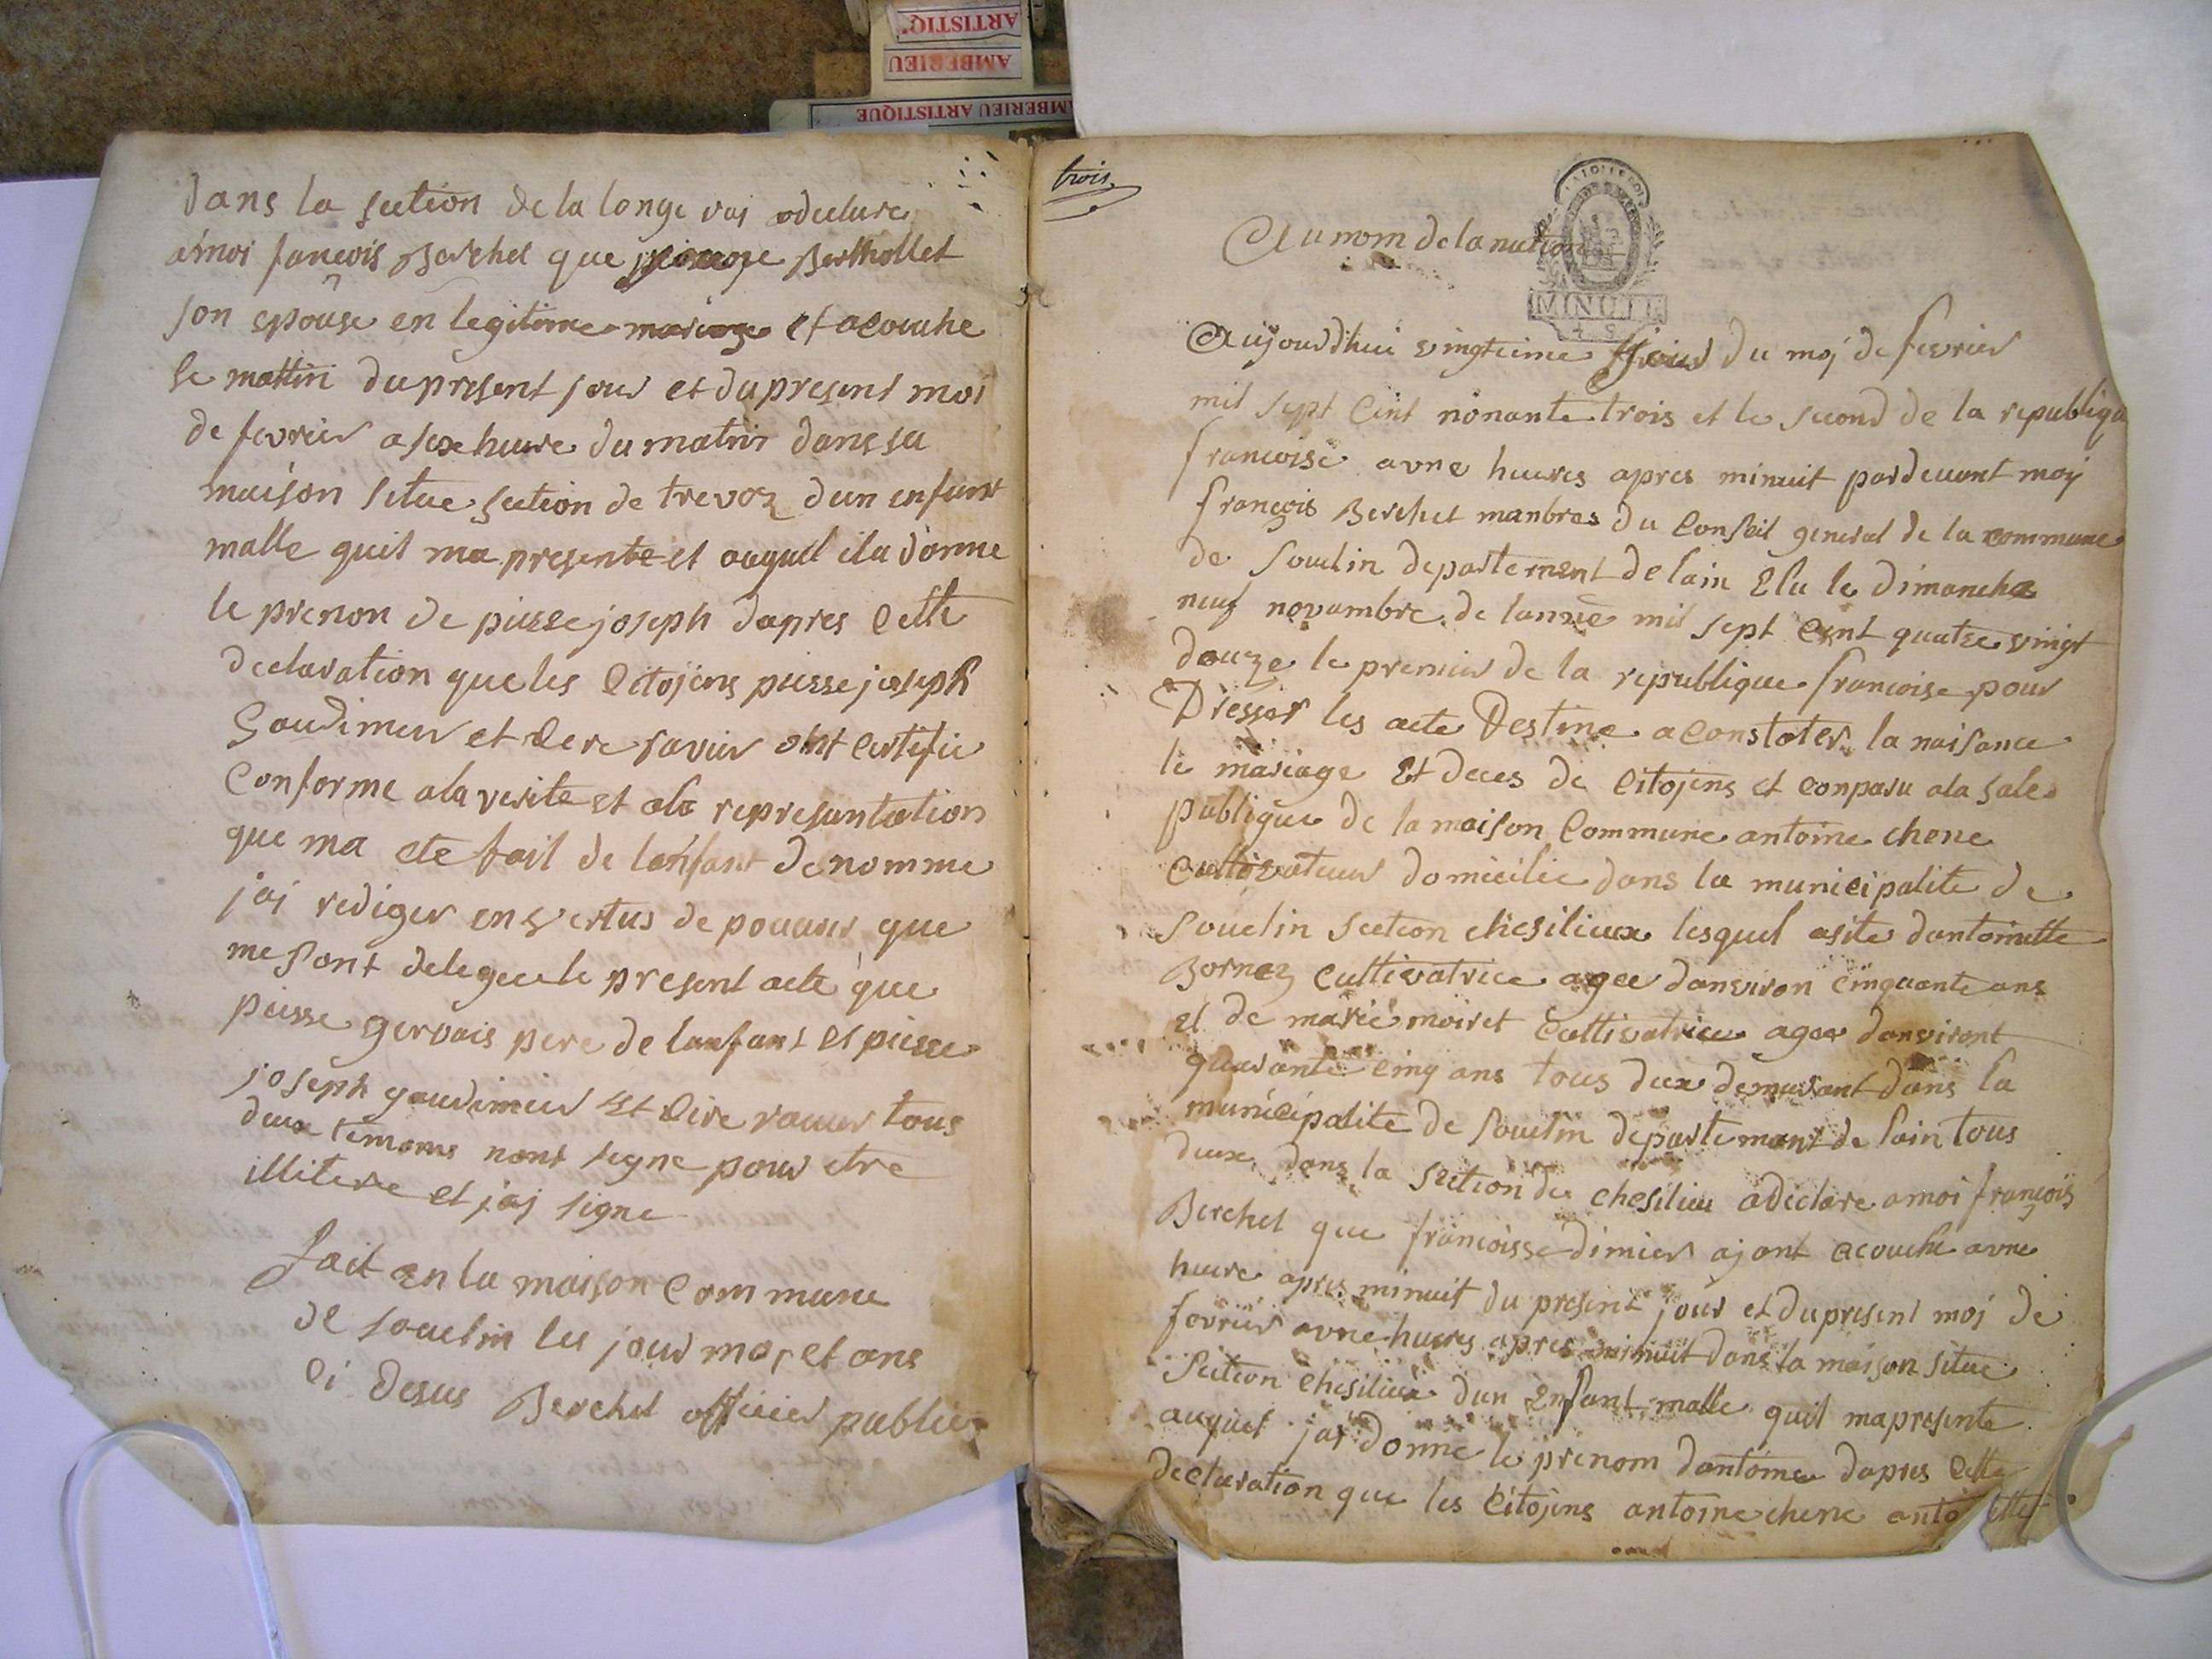 ARTISTIQ
AMBERIEU
MBERIEU ARTISTIQUE
dans la section de la longe vaj adeclare
a moi fancois Berchet que Berthollet
son epouse en legitime mariage et acouche
le mattin du present jour et du present moi
de fevrier a sixe hure du matin dans sa
maison situe section de trevoz dun enfant
malle quil ma presente et auquel il a donne
le prenon de piesse joseph dapres cette
declaration que les citojens piesse joseph
Goudimer et ont certifie
conforme a la verite et ala representation
que ma ete fait de lanfant denomme
jaj rediger en vertus de pouvoir que
me sont delegue le present acte que
piesse gervais pere de lanfant et piesse
joseph goudimier et tous
deux temoins nont signe pour etre
illitere et jaj signe
fait en la maison commune
de souclin les jour moj et ans
ci desus Berchet officier public
trois
LA LOI LE ROI
MINUTE
4 S
Au nom de la nation
Aujourdhui vingtieme jour du moj de fevrier
mil sept cent nonante trois et le second de la republiqu
francoise a une heures apres minuit pardevant moy
françois Berchet manbres du Conseil general de la commune
de souclin departement de lain Elu le dimanche
neuf novambre de lannee mil sept cent quatre vingt
douze le premier de la republique francoise pour
Dresser les acte Destine a constater la naisance
le mariage Et deces de citojens et conparu ala sale
publique de la maison Commune antoine chene
cultivateur domicilie dans la municipalite de
souclin section chesilieux lesquel asite dantoinette
Bornez cultivatrice agee danviron cinquante ans
et de marie moiret cultivatrice agee danviront
quarante cinq ans tous deux demurant dans la
municipalite de souclin departemant de lain tous
deux dans la section de chesilieu a declare a moi françois
Berchet que francoisse dimier ajant acouche a une
hure apres minuit du present jour et du present moj de
fevrier a une hures apres minuit dans la maison situe
section chesilieux dun Enfant malle quil ma presente
auquel jaj donne le prenom dantoine dapres cette
declaration que les citojens antoine chene anto ette